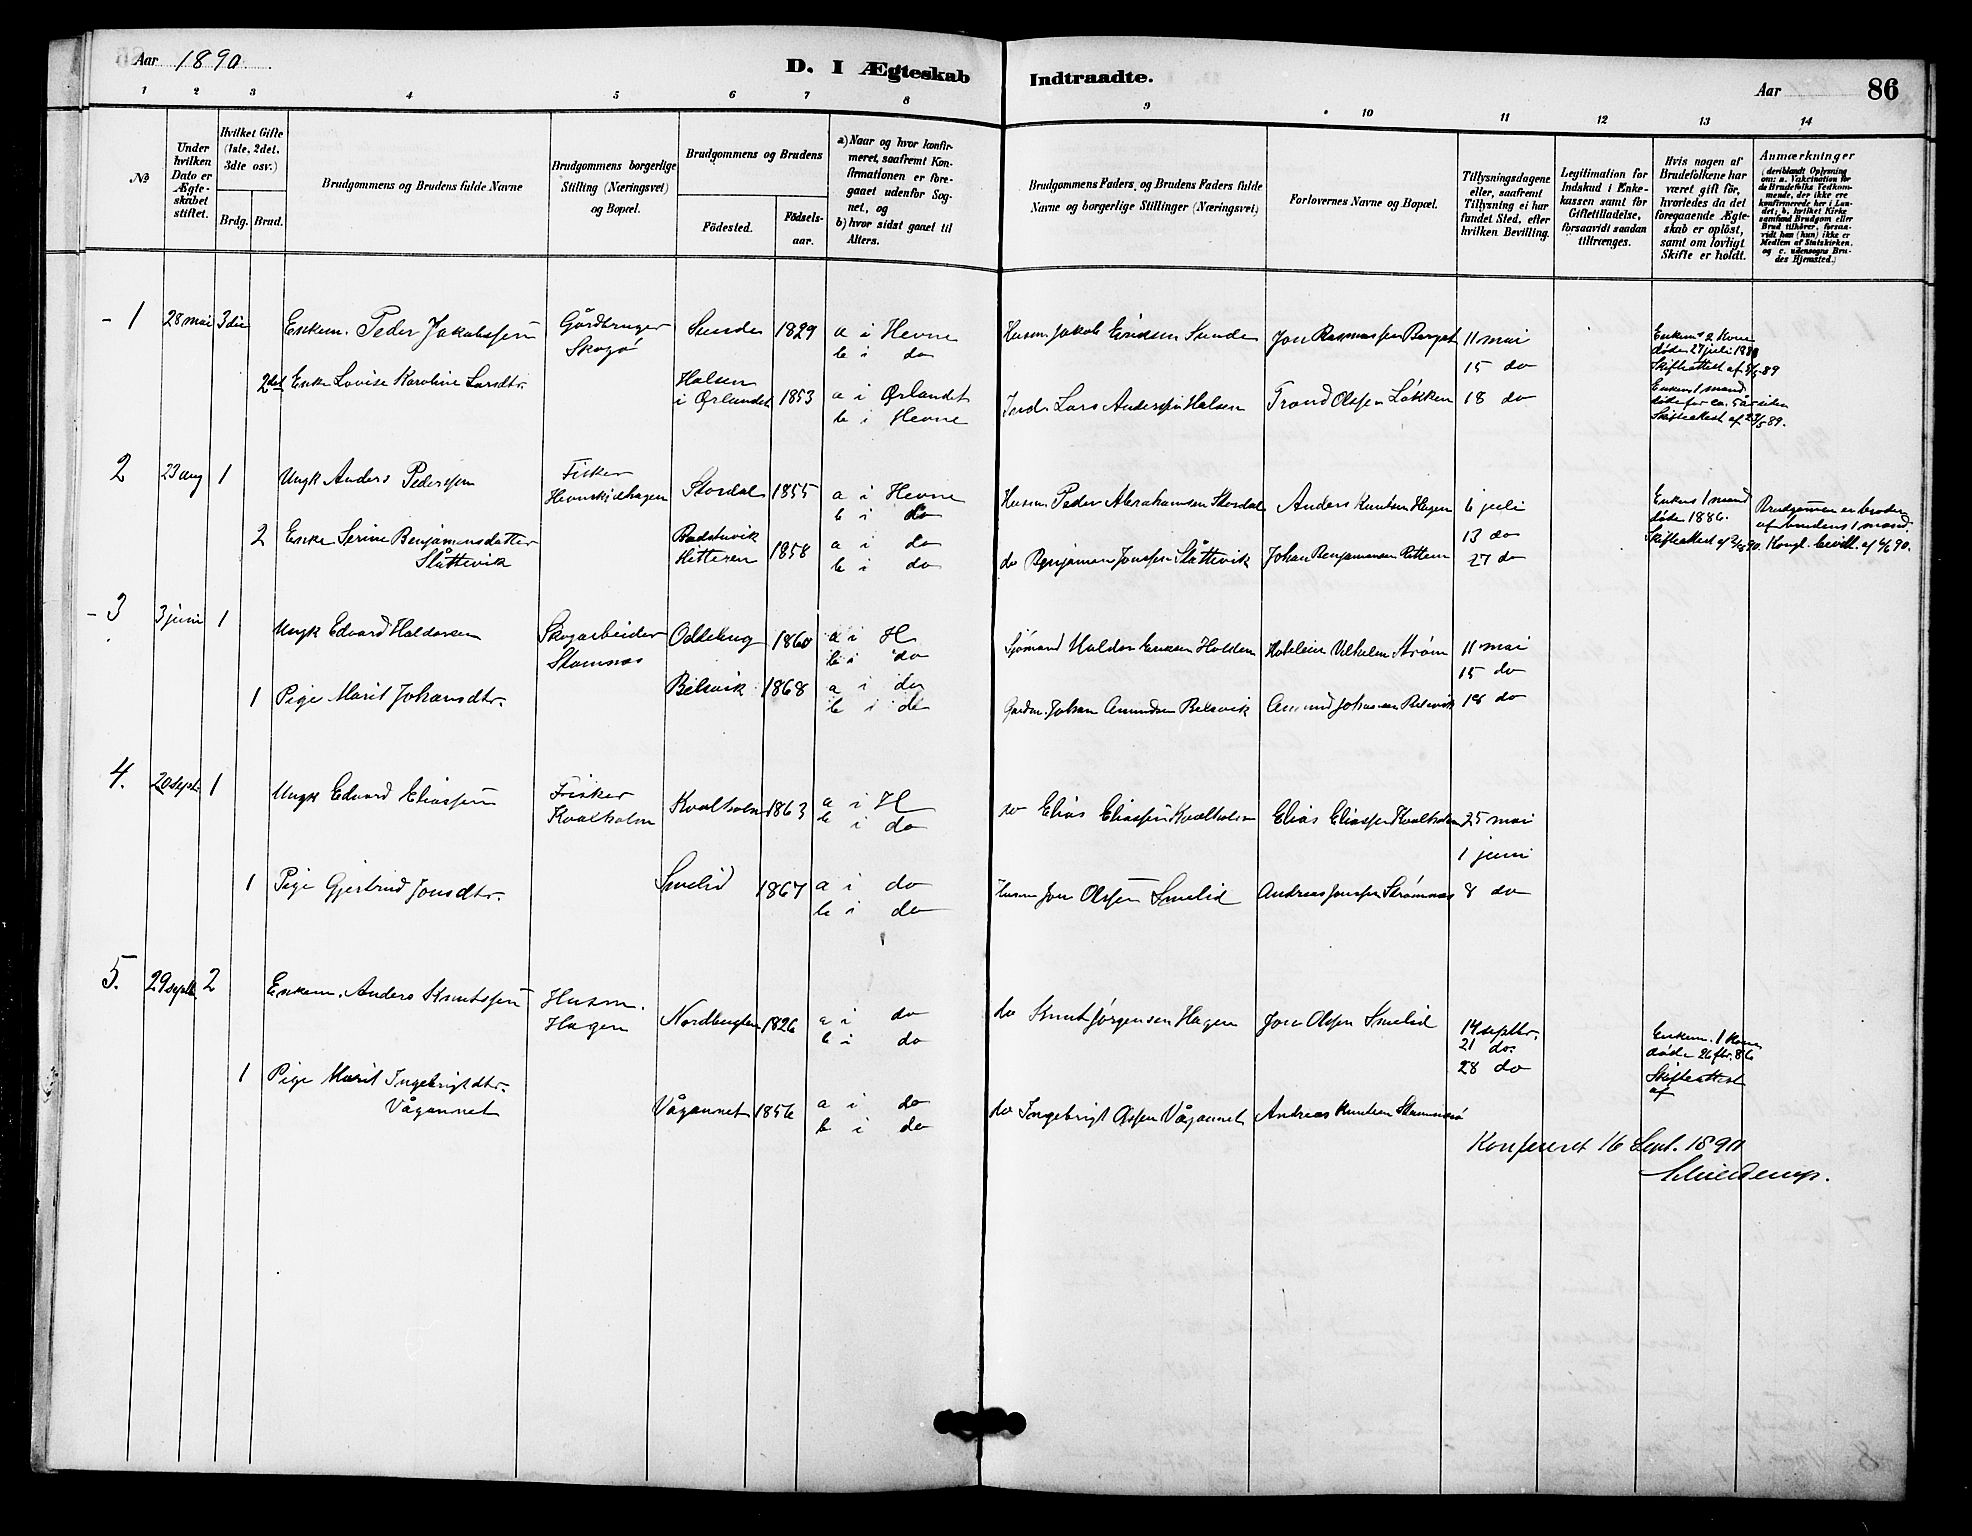 Aar 1890.
D. I Ægteskab Indtraadte.
Aar
86
1 2 3 4 5 6 7 8 9 10 11 12 13 14
No
Under hvilken Dato er Ægteskabet stiftet.
Hvilket Gifte (1ste, 2det, 3die osv.)
Brdg. Brud.
Brudgommens og Brudens fulde Navne
Brudgommens borgerlige Stilling (Næringsvei) og Bopæl.
Brudgommens og Brudens
Födested.
Födselsaar.
a) Naar og hvor konfirmeret, saafremt Konfirmationen er foregaaet udenfor Sognet, og
b) hvor sidst gaaet til Alters.
Brudgommens Faders, og Brudens Faders fulde Navne og borgerlige Stillinger (Næringsvei)
Forlovernes Navne og Bopæl.
Tillysningsdagene eller, saafremt Tillysning ei har fundet Sted, efter hvilken Bevilling.
Legitimation for Indskud i Enkekassen samt for Giftetilladelse, forsaavidt saadan tiltrænges.
Hvis nogen af Brudefolkene har været gift för, hvorledes da det foregaaende Ægteskab er oplöst, samt om lovligt Skifte er holdt.
Anmærkninger (deriblandt Oplysning om: a. Vakcination for de Brudefolks Vedkommende, der ikke ere konfirmerede her i Landet; b. hvilket Kirkesamfund Brudgom eller Brud tilhörer, forsaavidt han (hun) ikke er Medlem af Statskirken. og c. udensogns Brudes Hjemsted.)
- 1 28 mai 3die Enkem. Peder Jakobssen Gårdbruger Skogø Sunde 1829 a i Hevne
b i do
Husm. Jakob Eriksen Sunde Jon Rasmussen Berget 11 mai
15 do
18 do
Enkem. 2 Kone døde 27 juli 1888
Skifteattest af
2det Enke Lovise Karoline Larsdtr. Halsen i Ørlandet 1853 a i Ørlandet
b i Hevne
Inds. Lars Anderssen Halsen Trond Olssen Løkken
Enkens 1 mand døde for ca. 5 år siden
Skifteattest af 23/5 89.
2 23 aug 1 Ungk Anders Pederssen Fisker Hevnskjelhagen Stordal 1855 a i Hevne
b i do
Husm. Peder Abrahamsen Stordal Anders Knutsen Hagen 6 juli
13 do
27 do
Enkens 1 mand døde 1886.
Skifteattest af
Brudgommen er broder af brudens 1 mand.
Kongl. bevill. af
2 Enke Serine Benjaminsdatter Slåttevik Badstuvik Hitteren 1858 a i do
b i do
do Benjamin Jonssen Slåttevik Johan Benjaminsen
- 3 3 juni 1 Ungk Edvard Haldorsen Skogarbeider Stamnes 1860 a i H
b i do
Sjømand Haldor Eriksen Vilhelm Strøm 11 mai
15 do
18 do
1 Pige Marit Johansdtr. Belsvik 1868 a i do
b i do
Gardm. Johan Amundsen Belsvik Amund Johansen Belsvik
4. 20 sept. 1 Ungk Edvard Eliassen Fisker Kvalholm Kvalholm 1863 a i H
b i do
do Elias Eliassen Kvalholm Elias Eliassen Kvalholm 25 mai
1 juni
8 do
1 Pige Gjertrud Jonsdtr. Smelid 1867 a i do
b i do
Husm Jon Olssen Smelid Andreas Jonssen Strømnes
5. 29 septb. 2 Enkem. Anders Knutssen Husm. Hagen 1826 a i do
b i do
do Knut Jørgensen Hagen Jon Olssen Smelid 14 septbr.
21 do.
28 do
Enkem. 1 kone døde 26 86
Skifteattest af
1 Pige Marit Ingebrigtdtr. Vågannet Vågannet 1856 a i do
b i do
do Ingebrigt Vågannet Andreas Knutsen
Konfereret 16 Sept. 1890